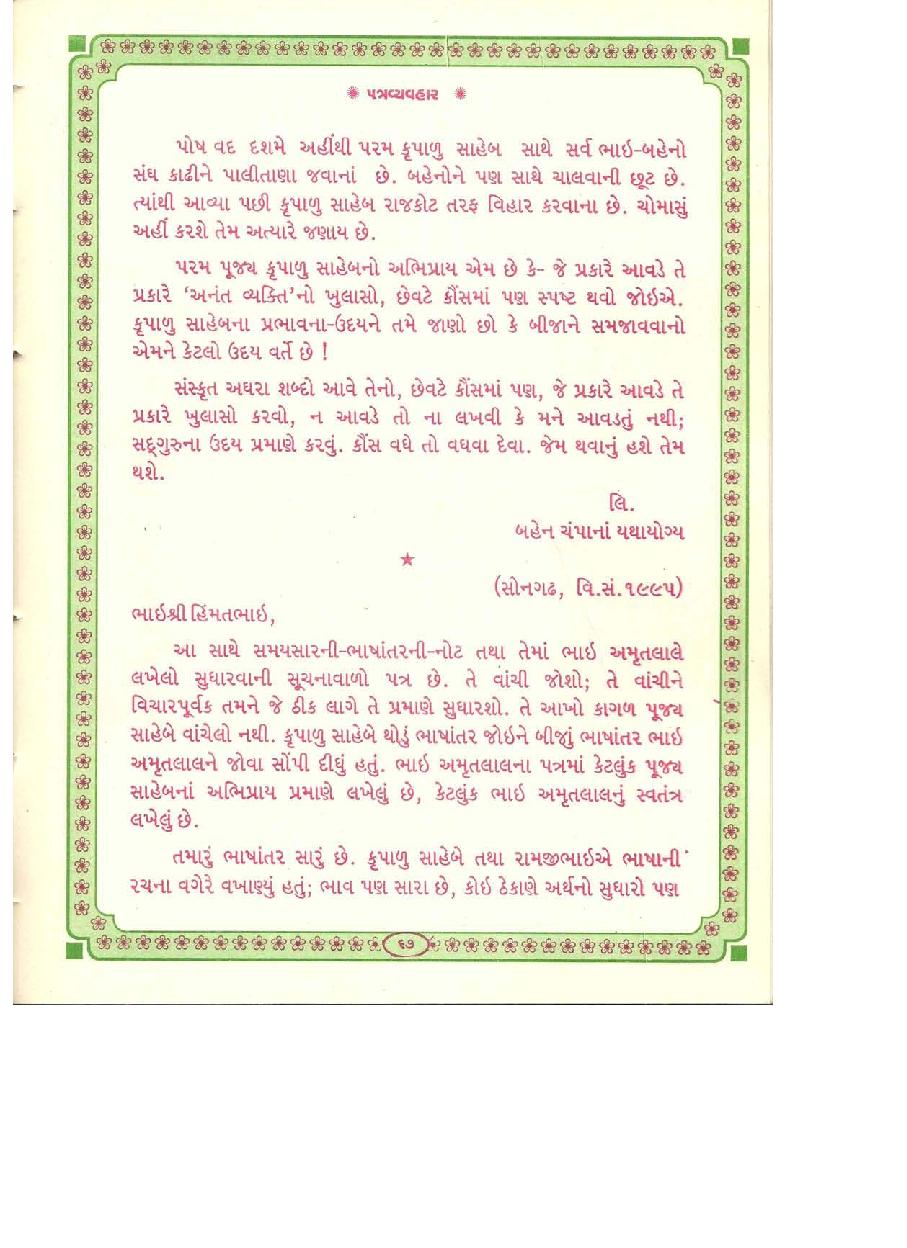 પત્રવ્યવહાર
પોષ વદ દશમે અહીંથી પરમ કૃપાળુ સાહેબ સાથે સર્વ ભાઇ-બહેનો
સંઘ કાઢીને પાલીતાણા જવાનાં છે. બહેનોને પણ સાથે ચાલવાની છૂટ છે.
ત્યાંથી આવ્યા પછી કૃપાળુ સાહેબ રાજકોટ તરફ વિહાર કરવાના છે. ચોમાસું
અહીં કરશે તેમ અત્યારે જણાય છે.
પરમ પૂજ્ય કૃપાળુ સાહેબનો અભિપ્રાય એમ છે કે- જે પ્રકારે આવડે તે
પ્રકારે ‘અનંત વ્યક્તિ’નો ખુલાસો, છેવટે કૌંસમાં પણ સ્પષ્ટ થવો જોઇએ.
કૃપાળુ સાહેબના પ્રભાવના-ઉદયને તમે જાણો છો કે બીજાને સમજાવવાનો
એમને કેટલો ઉદય વર્તે છે !
સંસ્કૃત અઘરા શબ્દો આવે તેનો, છેવટે કૌંસમાં પણ, જે પ્રકારે આવડે તે
પ્રકારે ખુલાસો કરવો, ન આવડે તો ના લખવી કે મને આવડતું નથી;
સદ્ગુરુના ઉદય પ્રમાણે કરવું. કૌંસ વધે તો વધવા દેવા. જેમ થવાનું હશે તેમ
થશે.
લિ.
બહેન ચંપાનાં યથાયોગ્ય
(સોનગઢ, વિ.સં.૧૯૯૫)
ભાઇશ્રી હિંમતભાઇ,
આ સાથે સમયસારની-ભાષાંતરની-નોટ તથા તેમાં ભાઇ અમૃતલાલે
લખેલો સુધારવાની સૂચનાવાળો પત્ર છે. તે વાંચી જોશો; તે વાંચીને
વિચારપૂર્વક તમને જે ઠીક લાગે તે પ્રમાણે સુધારશો. તે આખો કાગળ પૂજ્ય
સાહેબે વાંચેલો નથી. કૃપાળુ સાહેબે થોડું ભાષાંતર જોઇને બીજું ભાષાંતર ભાઇ
અમૃતલાલને જોવા સોંપી દીધું હતું. ભાઇ અમૃતલાલના પત્રમાં કેટલુંક પૂજ્ય
સાહેબનાં અભિપ્રાય પ્રમાણે લખેલું છે, કેટલુંક ભાઇ અમૃતલાલનું સ્વતંત્ર
લખેલું છે.
તમારું ભાષાંતર સારું છે. કૃપાળુ સાહેબે તથા રામજીભાઇએ ભાષાની
રચના વગેરે વખાણ્યું હતું; ભાવ પણ સારા છે, કોઇ ઠેકાણે અર્થનો સુધારો પણ
૬૭